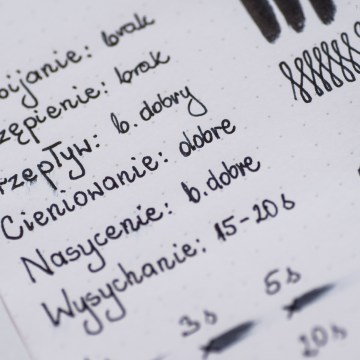 bijanie: brak
zępienie: brak
rzepływ: b. dobry
Cieniowanie: dobre
Nasycenie: b. dobre
Wysychanie: 15-20s
3s 5s
20s